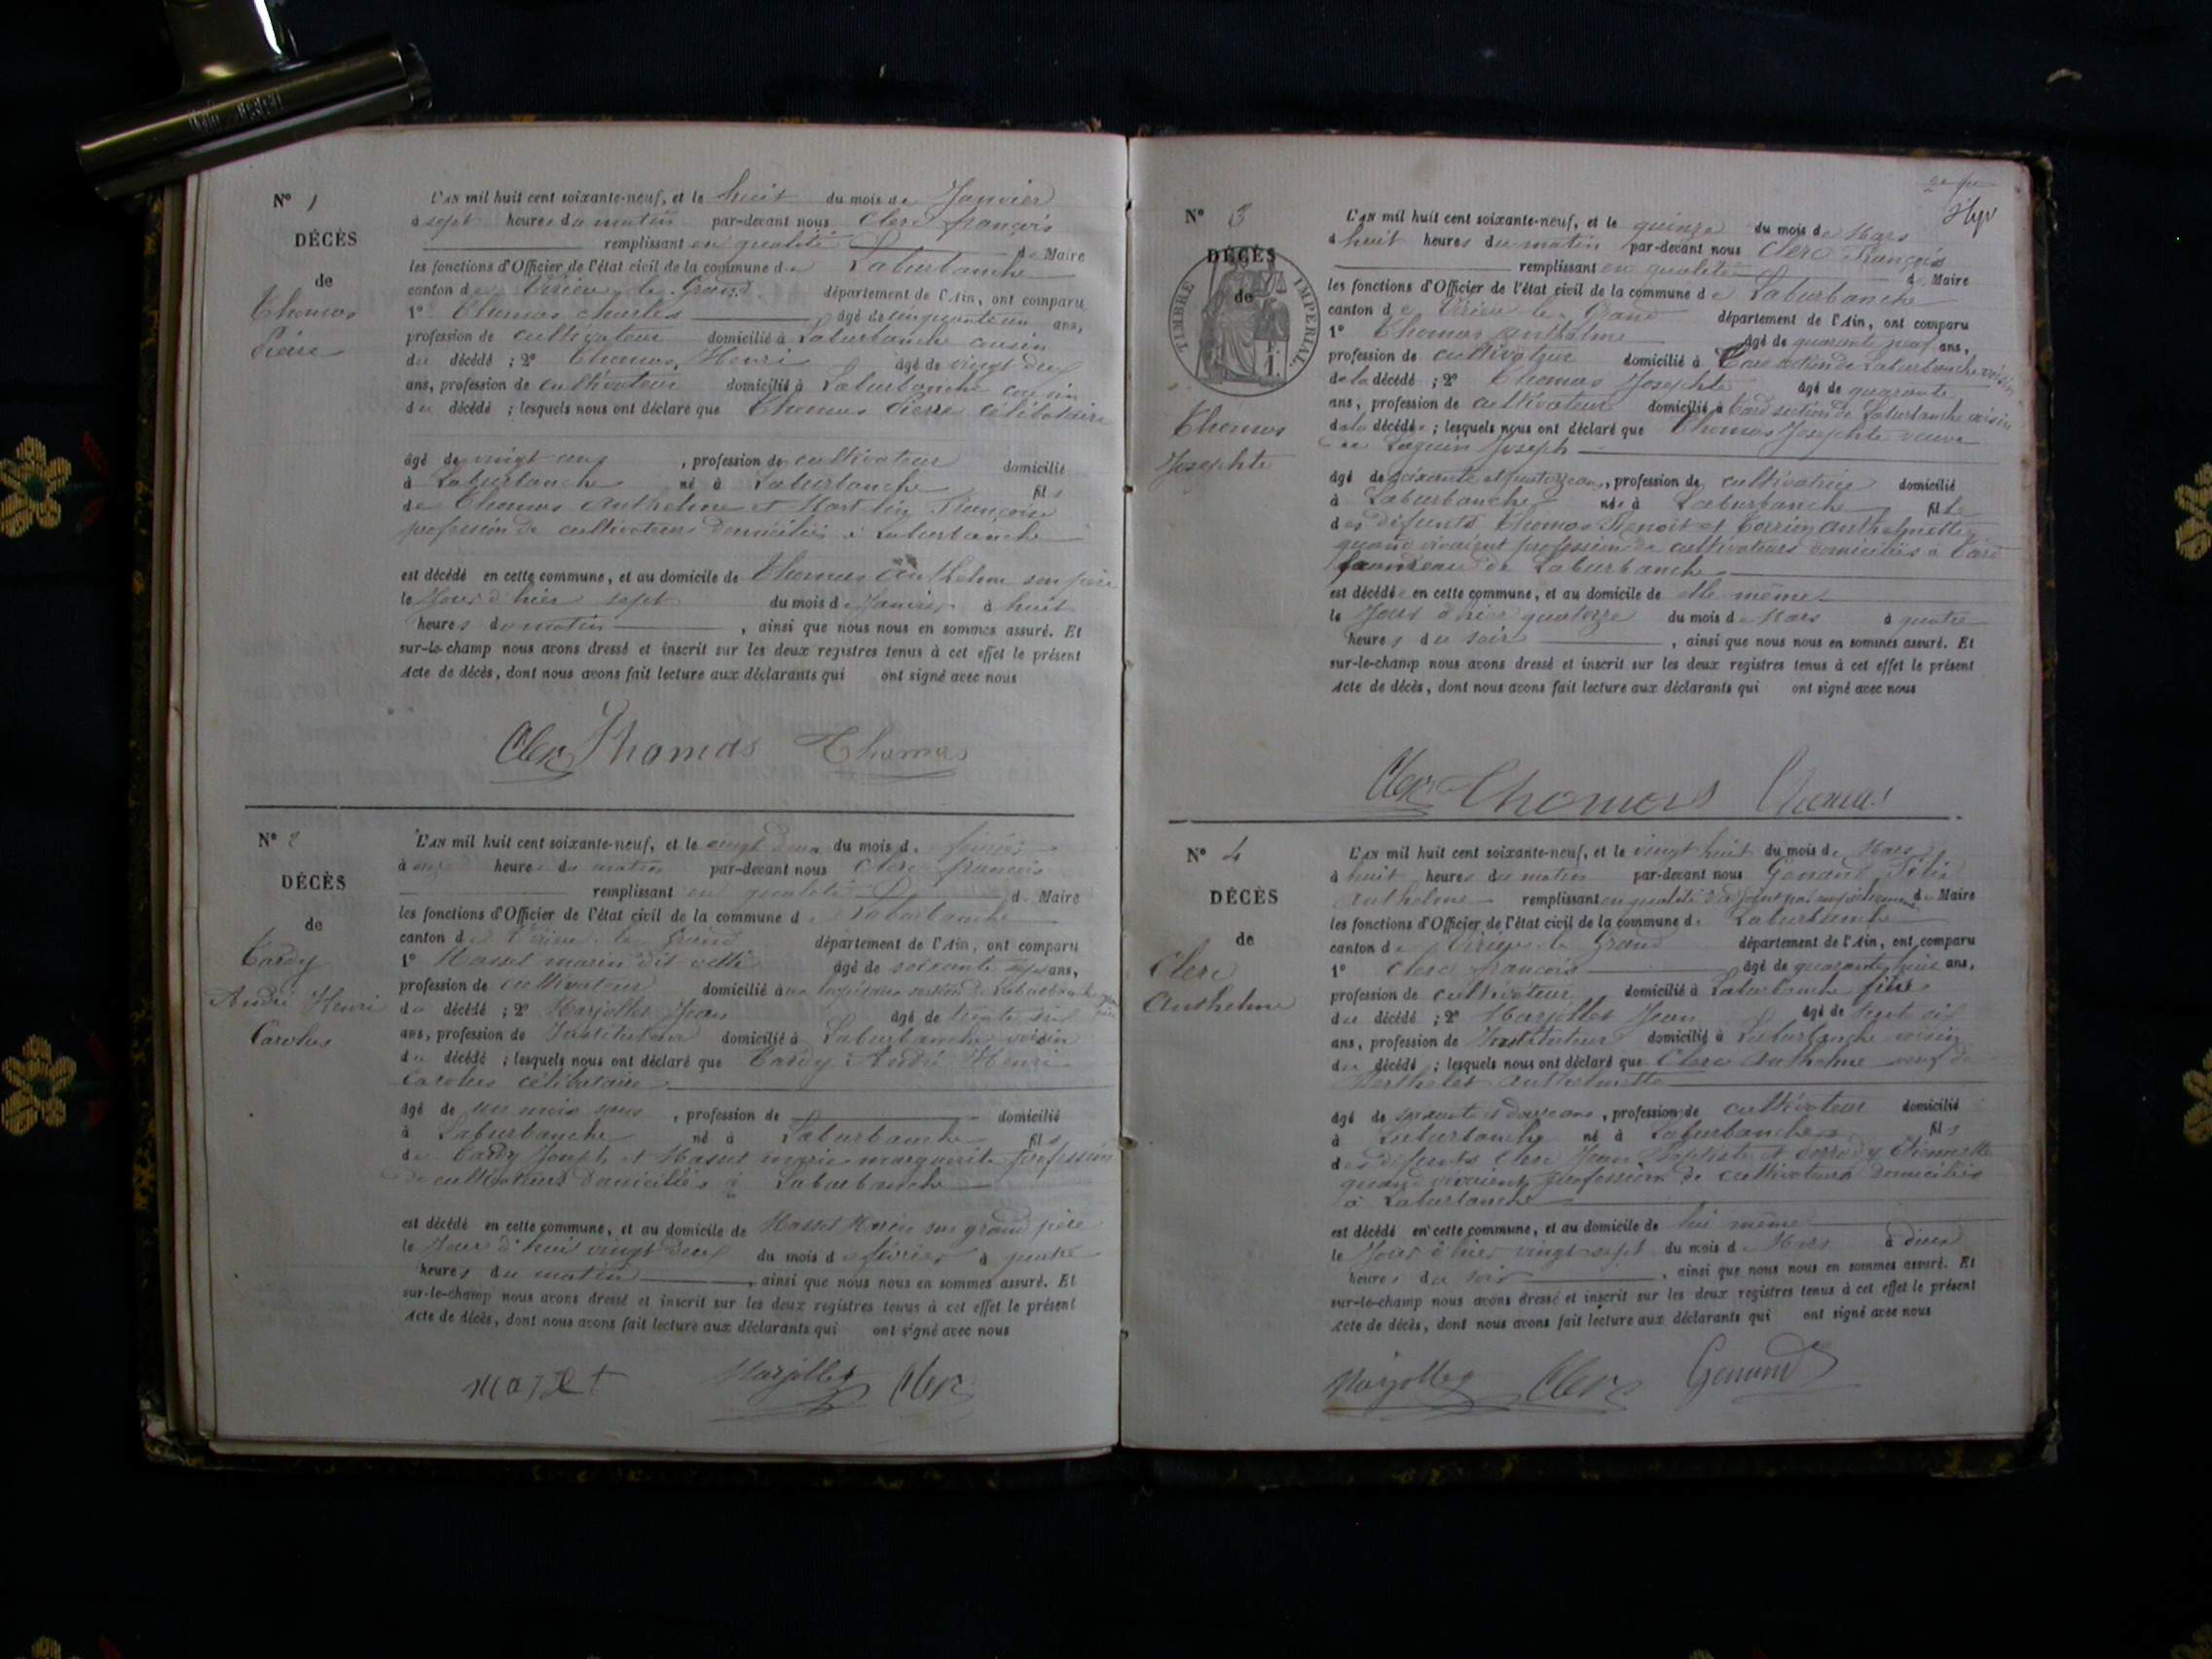 N° 1
DÉCÈS
de
Thomas
Pierre
L'AN mil huit cent soixante-neuf, et le huit du mois de Janvier
à sept heures du matin par-devant nous Clerc françois
remplissant en qualité de Maire
les fonctions d'Officier de l'état civil de la commune de Laburbanche
canton de Virieu le Grand département de l'Ain, ont comparu
1° Thomas Charles âgé de cinquante un ans,
profession de cultivateur domicilié à Laburbanche cousin
du décédé ; 2° Thomas Henri âgé de vingt deux
ans, profession de cultivateur domicilié à Laburbanche cousin
du décédé ; lesquels nous ont déclaré que Thomas Pierre célibataire
âgé de vingt ans , profession de cultivateur domicilié
à Laburbanche né à Laburbanche fils
de Thomas Anthelme et Martin Françoise
profession de cultivateurs domiciliés à Laburbanche
est décédé en cette commune, et au domicile de Thomas Anthelme son père
le Jour d'hier sept du mois de Janvier à huit
heures du matin , ainsi que nous nous en sommes assuré. Et
sur-le-champ nous avons dressé et inscrit sur les deux registres tenus à cet effet le présent
Acte de décès, dont nous avons fait lecture aux déclarants qui ont signé avec nous
Clerc Thomas Thomas
N° 2
DÉCÈS
de
Tardy
André Henri
Carolus
L'AN mil huit cent soixante-neuf, et le vingt deux du mois de février
à onze heures du matin par-devant nous Clerc françois
remplissant en qualité De d Maire
les fonctions d'Officier de l'état civil de la commune de Laburbanche
canton de Virieu le Grand département de l'Ain, ont comparu
1° Masset marin dit âgé de soixante sept ans,
profession de cultivateur domicilié section de Laburbanche
du décédé ; 2° Marjollet Jean âgé de trente six
ans, profession de Instituteur domicilié à Laburbanche voisin
du décédé ; lesquels nous ont déclaré que Tardy André Henri
Carolus célibataire
âgé de un mois , profession de domicilié
à Laburbanche né à Laburbanche fils
de Tardy Joseph et Masset marie marguerite profession
de cultivateurs domiciliés à Laburbanche
est décédé en cette commune, et au domicile de Masset Marin son grand père
le Jour d'hui vingt deux du mois de février à quatre
heures du matin , ainsi que nous nous en sommes assuré. Et
sur-le-champ nous avons dressé et inscrit sur les deux registres tenus à cet effet le présent
Acte de décès, dont nous avons fait lecture aux déclarants qui ont signé avec nous
maset Marjollet Clerc
N° 3
DÉCÈS
de
TIMBRE IMPERIAL
Thomas
Josephte
L'AN mil huit cent soixante-neuf, et le quinze du mois de Mars
à huit heures du matin par-devant nous Clerc François
remplissant en qualité de Maire
les fonctions d'Officier de l'état civil de la commune de Laburbanche
canton de Virieu le Grand département de l'Ain, ont comparu
1° Thomas Anthelme âgé de quarante neuf ans,
profession de cultivateur domicilié à section de Laburbanche voisin
de la décédé ; 2° Thomas Josephte âgé de quarante
ans, profession de cultivateur domicilié à section de Laburbanche voisin
de la décédée ; lesquels nous ont déclaré que Thomas Josephte veuve
de Joseph
âgé de soixante et quatorze ans, profession de cultivatrice domicilié
à Laburbanche née à Laburbanche fille
des défunts Thomas Benoit et Anthelmette
quand vivaient profession de cultivateurs domiciliés à
hameau de Laburbanche
est décédée en cette commune, et au domicile de elle même
le Jour d'hier quatorze du mois de Mars à quatre
heures du soir , ainsi que nous nous en sommes assuré. Et
sur-le-champ nous avons dressé et inscrit sur les deux registres tenus à cet effet le présent
Acte de décès, dont nous avons fait lecture aux déclarants qui ont signé avec nous
Clerc Thomas Thomas
N° 4
DÉCÈS
de
Clerc
Anthelme
L'AN mil huit cent soixante-neuf, et le vingt huit du mois de Mars
à huit heures du matin par-devant nous Genand Félix
Anthelme remplissant en qualité d'adjoint par empêchement du Maire
les fonctions d'Officier de l'état civil de la commune de Laburbanche
canton de Virieu le Grand département de l'Ain, ont comparu
1° Clerc françois âgé de quarante huit ans,
profession de cultivateur domicilié à Laburbanche fils
du décédé ; 2° Marjollet Jean âgé de trent six
ans, profession de Instituteur domicilié à Laburbanche voisin
du décédé ; lesquels nous ont déclaré que Clerc Anthelme veuf de
Berthelet Anthelmette
âgé de soixante et douze ans , profession de cultivateur domicilié
à Laburbanche né à Laburbanche fils
des défunts Clerc Jean Baptiste et Etiennette
quand vivaient profession de cultivateurs domiciliés
à Laburbanche
est décédé en cette commune, et au domicile de lui même
le Jour d'hier vingt sept du mois de Mars à deux
heures du soir , ainsi que nous nous en sommes assuré. Et
sur-le-champ nous avons dressé et inscrit sur les deux registres tenus à cet effet le présent
Acte de décès, dont nous avons fait lecture aux déclarants qui ont signé avec nous
Marjollet Clerc Genand